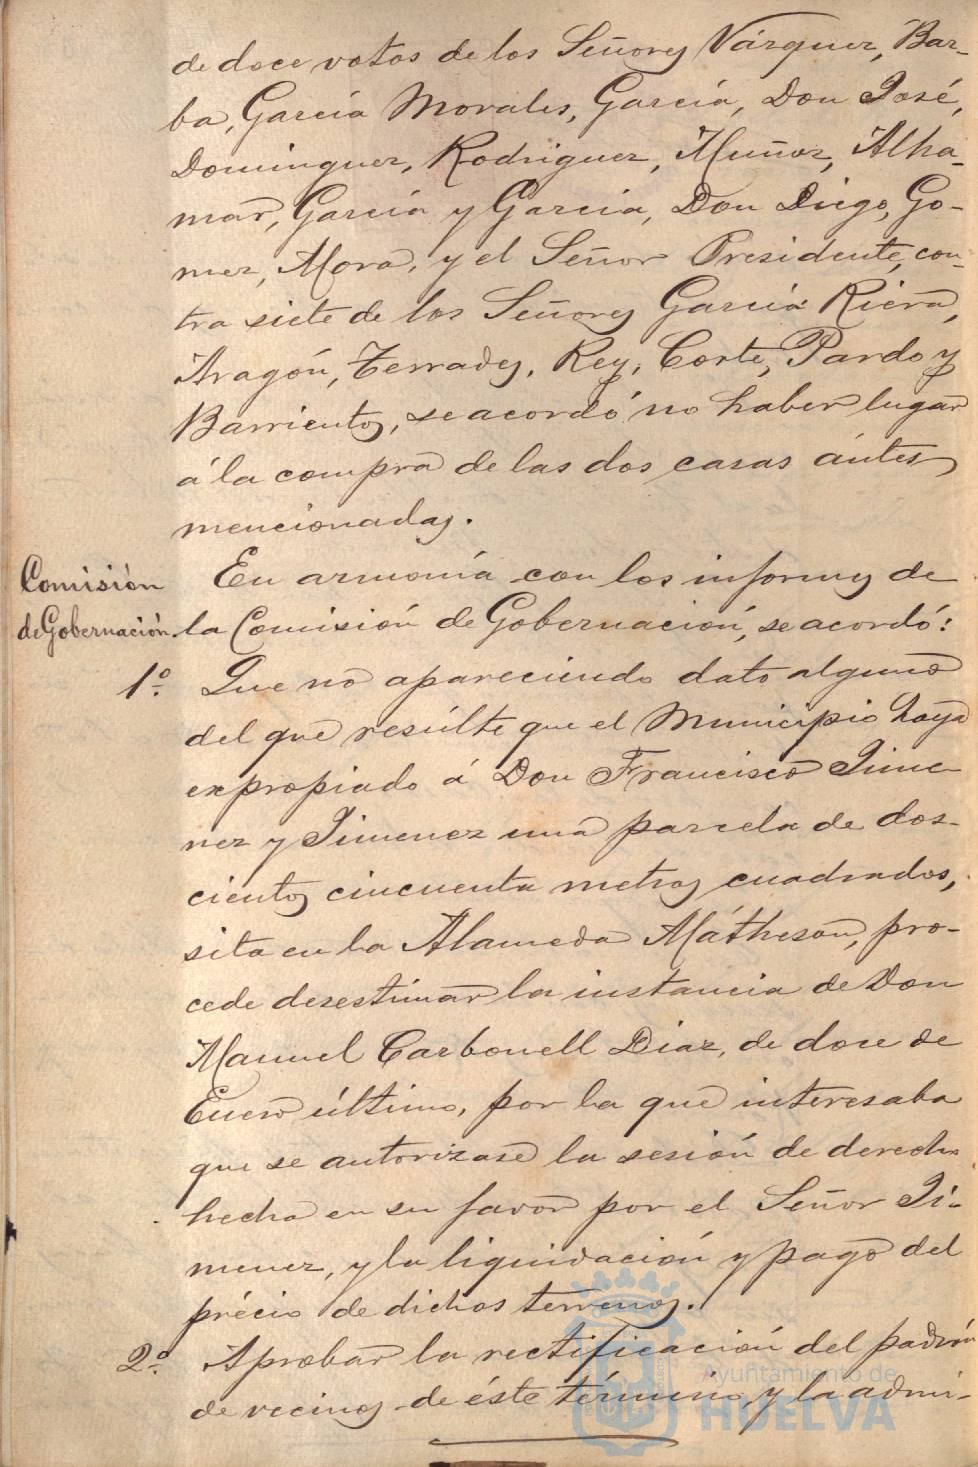 de doce votos de los Señores Vázquez, Bar-
ba, García Morales, García, Don José,
Dominguez, Rodriguez, Muñoz, Alha-
mar, García y Garcia, Don Diego, Go-
mez, Mora, y el Señor Presidente, con-
tra siete de los Señores García Riera,
Aragón, Terrades, Rey, Corte, Pardo y
Barrientos, se acordó no haber lugar
á la compra de las dos casas ántes
mencionadas.
Comisión
de Gobernación.
En armonía con los informes de
la Comisión de Gobernación, se acordó:
1º. Que no apareciendo dato alguno
del que resúlte que el Municipio haya
expropiado á Don Francisco Jime
nez y Jimenez una parcela de dos-
cientos cincuenta metros cuadrados,
sita en la Alameda Mátheson, pro-
cede desestimar la instancia de Don
Manuel Carbonell Diaz, de doce de
Enero último, por la que interesaba
que se autorizase la sesión de derecho
hecha en su favor por el Señor Ji-
menez, y la liquidación y pago del
précio de dichos terrenos.
2º. Aprobar la rectificación del padrón
de vecinos de éste término, y la admi-
Ayuntamiento de
HUELVA